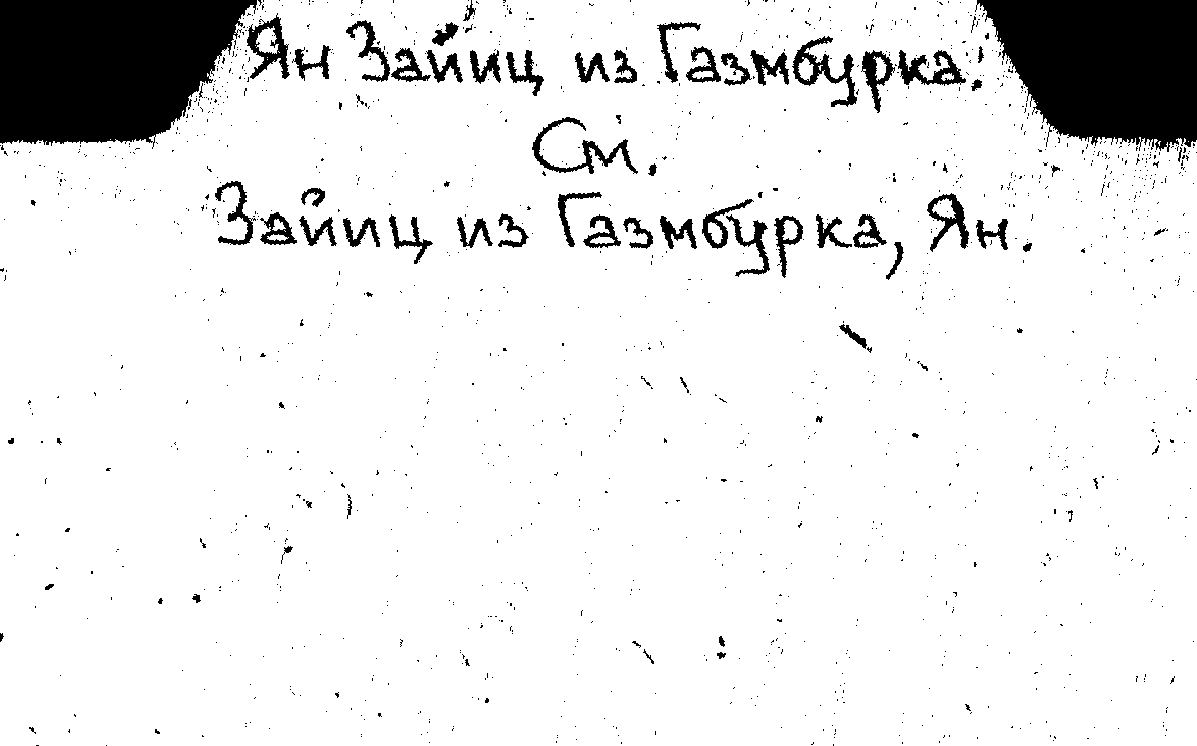 Ян Зайиц из Газмбурка.
См.
Зайиц из Газмбурка, Ян.